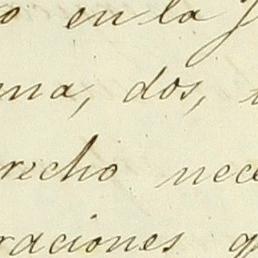 o en la J
una, dos,
recho nece
raciones q